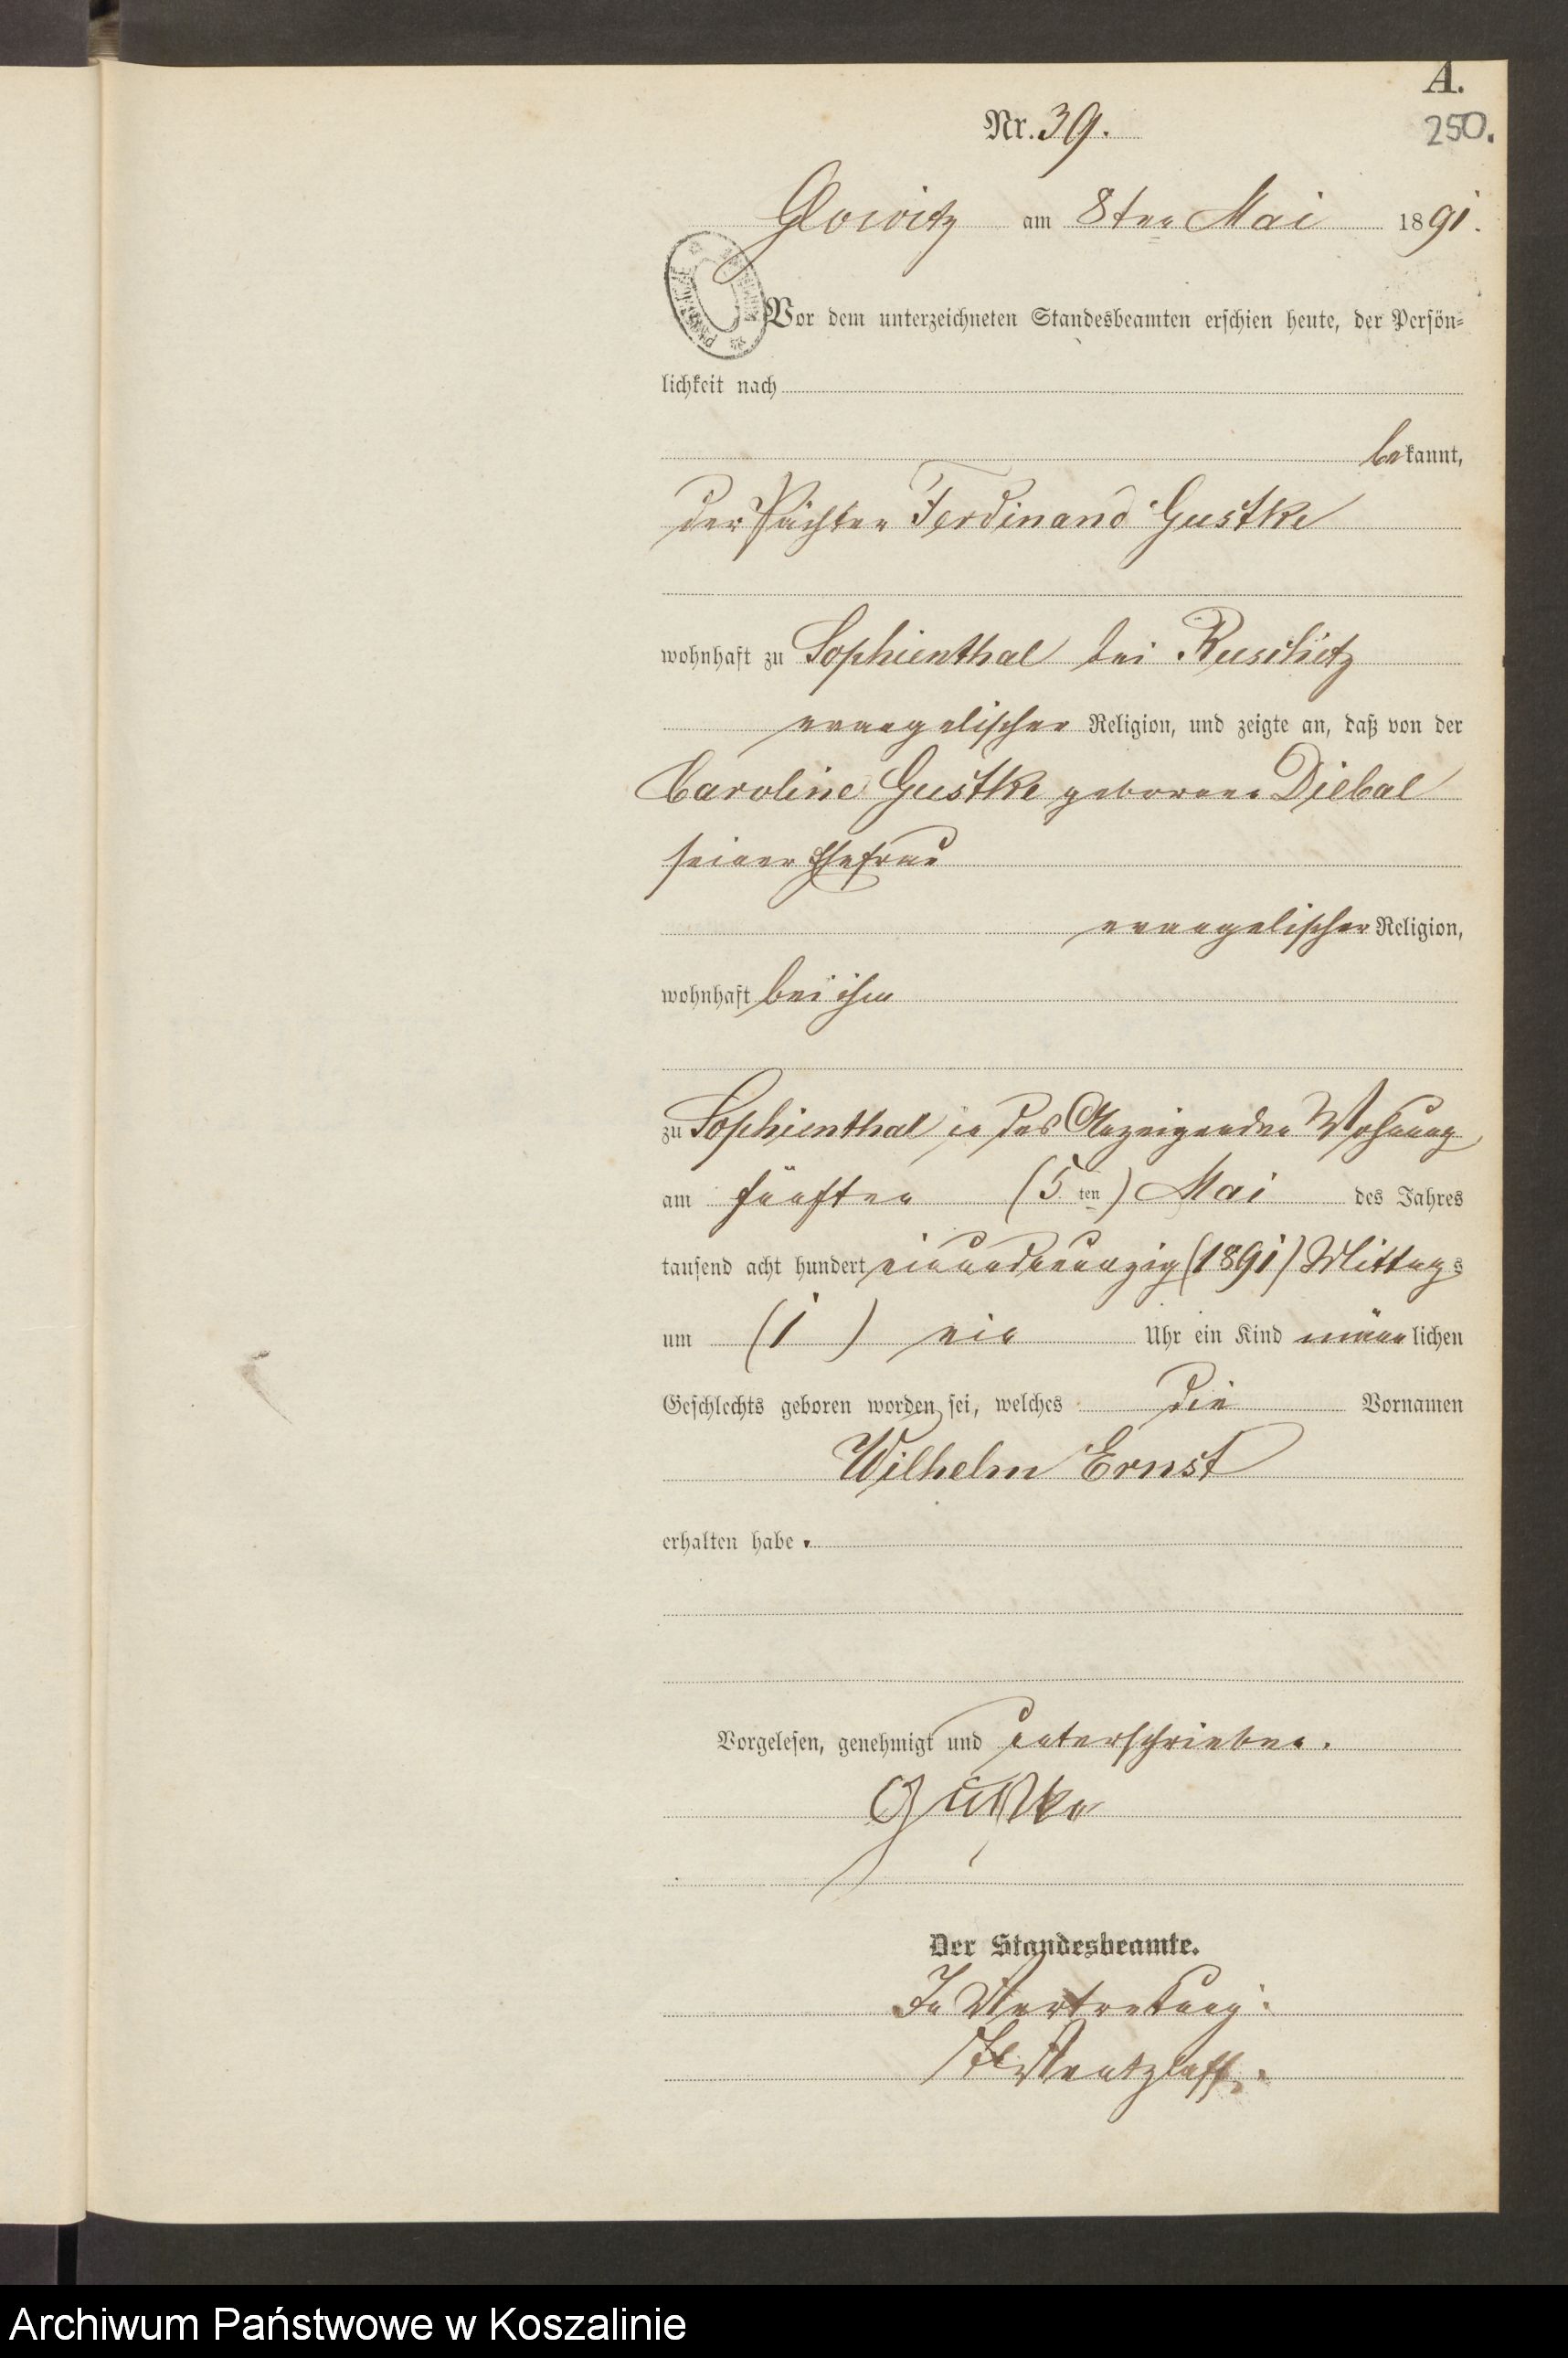 A.
Nr. 39.
250.
Glowitz am 8ten Mai 1891.
Vor dem unterzeichneten Standesbeamten erschien heute, der Persön-
lichkeit nach
bekannt,
der Pächter Ferdinand Gustke
wohnhaft zu Sophienthal bei Ruschütz
evangelischer Religion, und zeigte an, daß von der
Caroline Gustke geborene Diebal
seiner Ehefrau
evangelischer Religion,
wohnhaft bei ihm
zu Sophienthal in des Anzeigenden Wohnung
am fünften (5 ten) Mai des Jahres
tausend acht hundert einundneunzig (1891) Mittags
um (1) ein Uhr ein Kind männlichen
Geschlechts geboren worden sei, welches die Vornamen
Wilhelm Ernst
erhalten habe.
Vorgelesen, genehmigt und unterschrieben.
Gustke
Der Standesbeamte.
In Vertretung:
Wentzlaff.
Archiwum Państwowe w Koszalinie